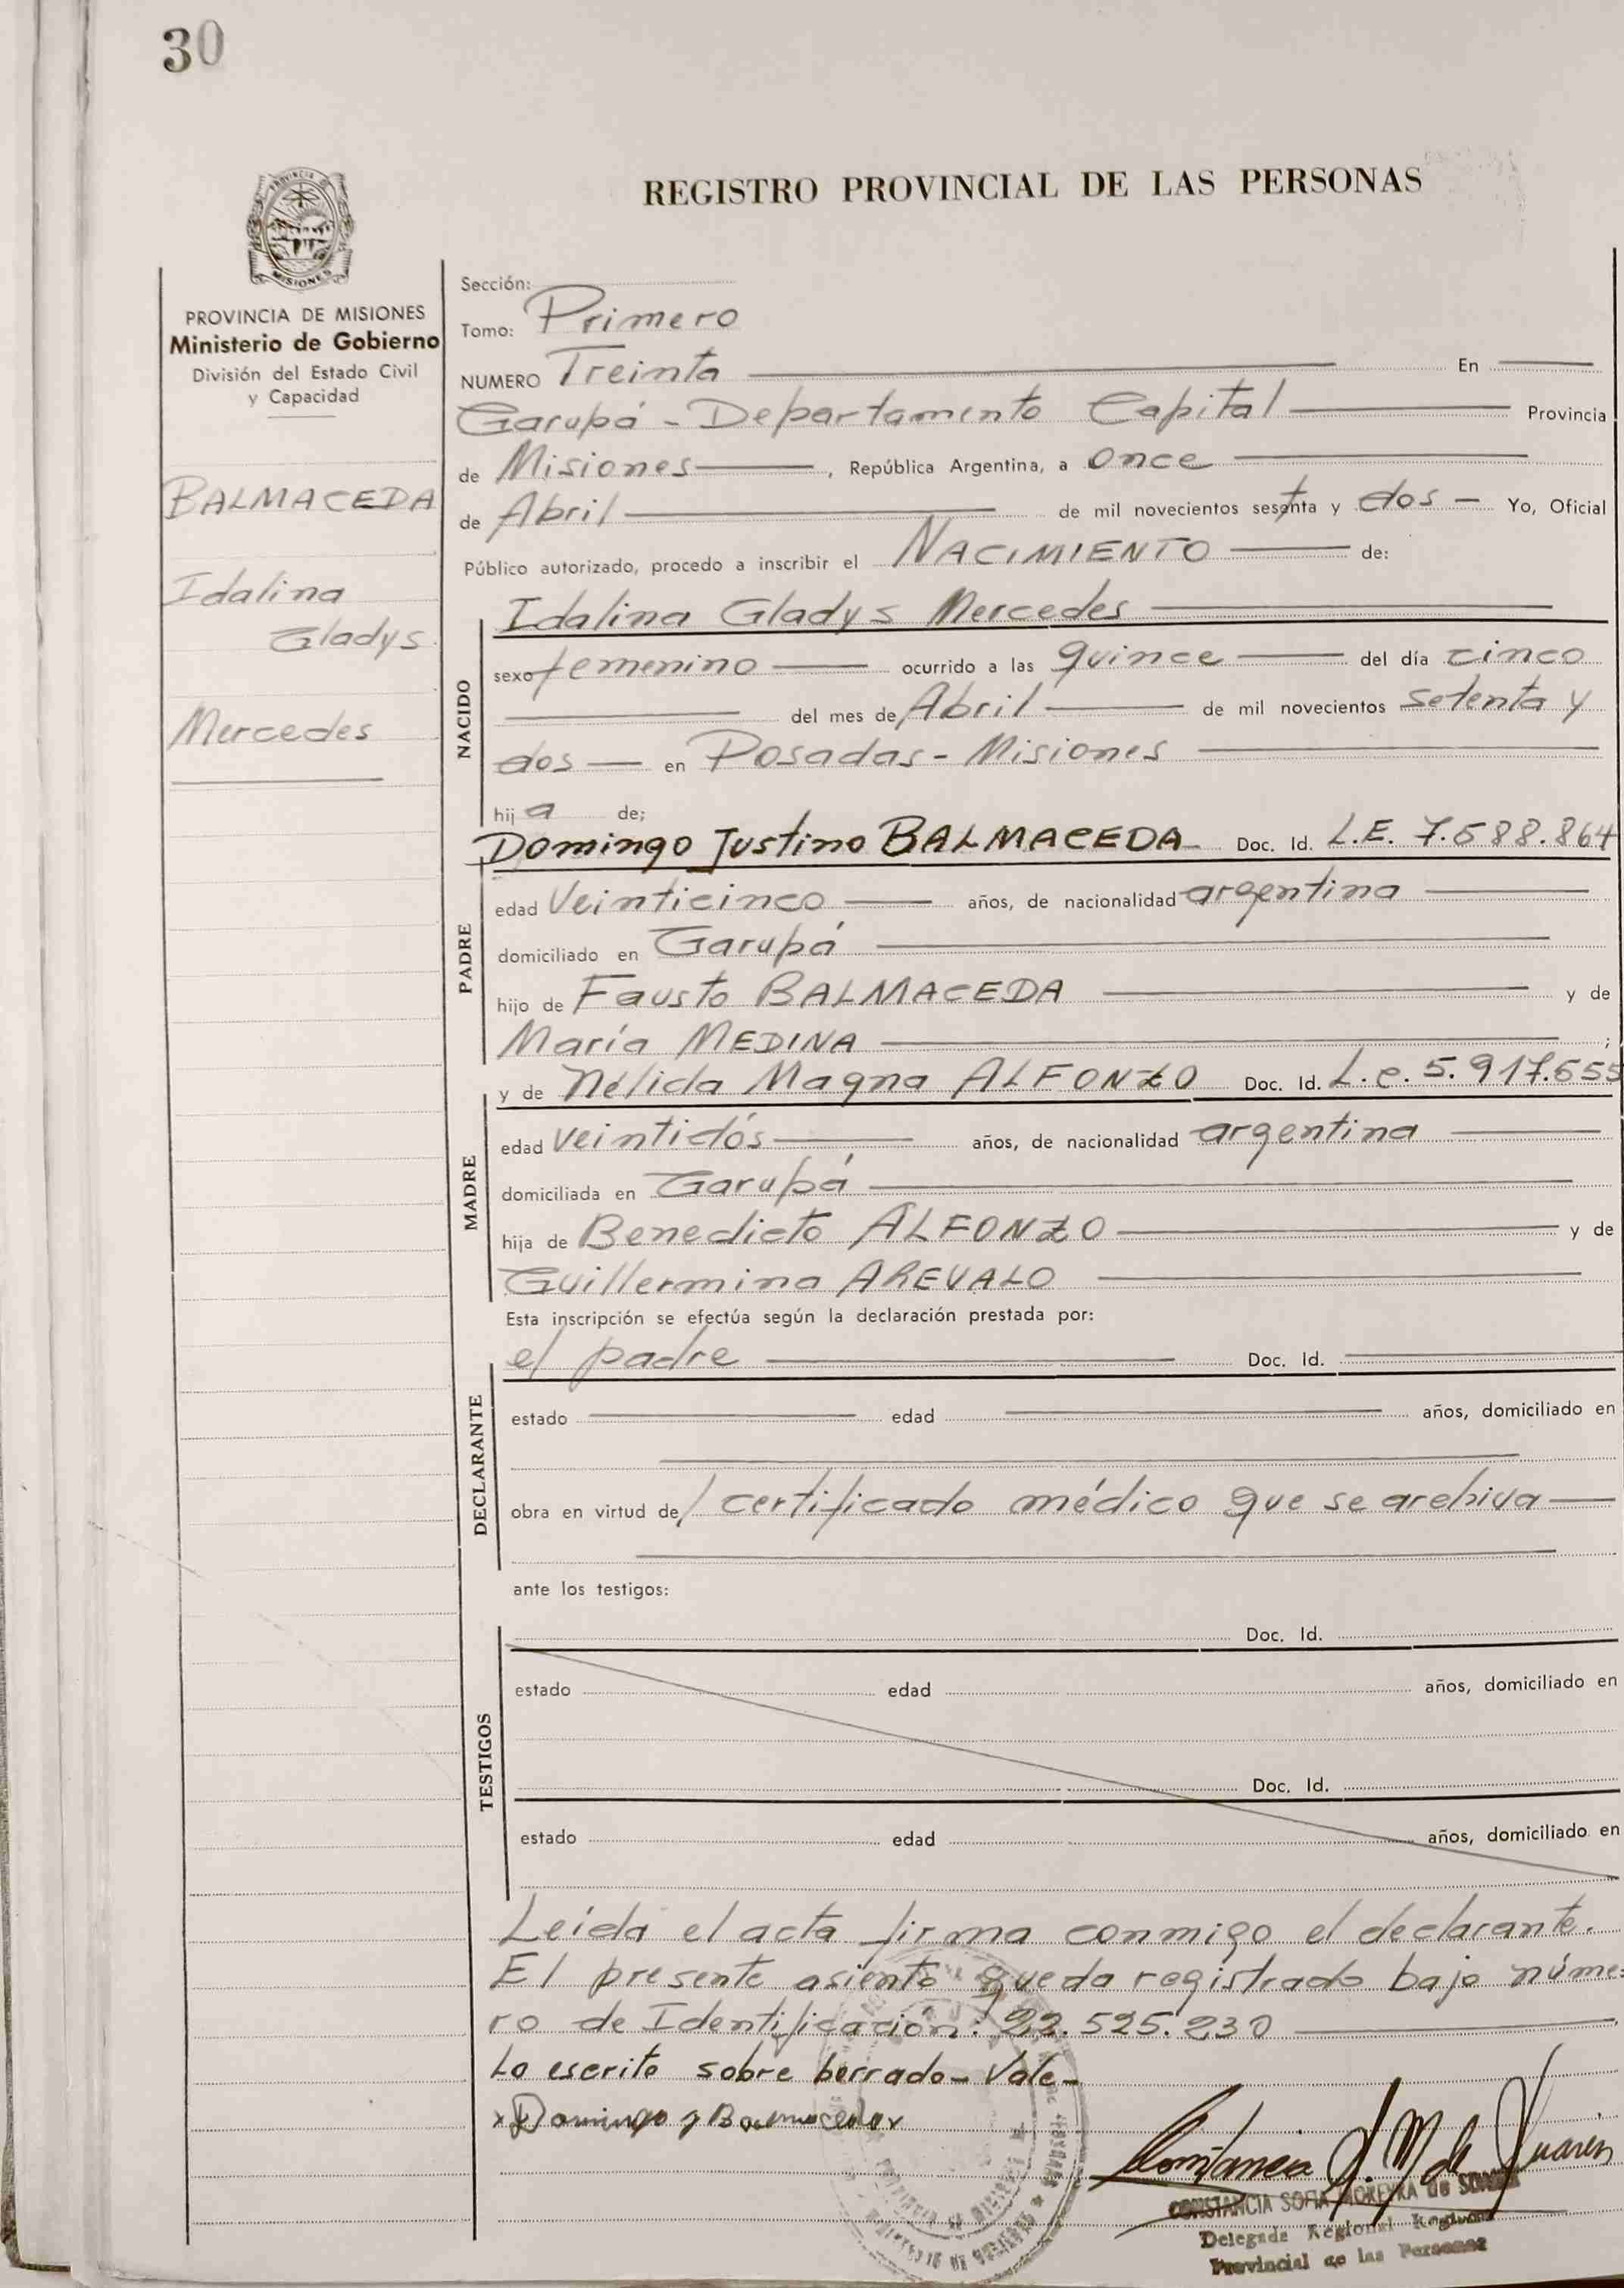 30
REGISTRO PROVINCIAL DE LAS PERSONAS
PROVINCIA
MISIONES
PROVINCIA DE MISIONES
Ministerio de Gobierno
División del Estado Civil
y Capacidad
BALMACEDA
Idalina
Gladys
Mercedes
Sección:
Tomo: Primero
NUMERO Treinta En
Garupá - Departamento Capital Provincia
de Misiones, República Argentina, a once
de Abril de mil novecientos setenta y dos - Yo, Oficial
Público autorizado, procedo a inscribir el NACIMIENTO de:
NACIDO
Idalina Gladys Mercedes
sexo femenino ocurrido a las quince del día cinco
del mes de Abril de mil novecientos setenta y
dos en Posadas - Misiones
hija de;
PADRE
Domingo Justino BALMACEDA - Doc. Id. L.E. 7.588.864
edad veinticinco años, de nacionalidad argentina
domiciliado en Garupá
hijo de Fausto BALMACEDA y de
María MEDINA ;
MADRE
y de Nélida Magna ALFONZO Doc. Id. L.c. 5.917.655
edad veintidós años, de nacionalidad argentina
domiciliada en Garupá
hija de Benedicto ALFONZO y de
Guillermina AREVALO
Esta inscripción se efectúa según la declaración prestada por:
DECLARANTE
el padre Doc. Id.
estado edad años, domiciliado en
obra en virtud del certificado médico que se archiva
ante los testigos:
TESTIGOS
Doc. Id.
estado edad años, domiciliado en
Doc. Id.
estado edad años, domiciliado en
Leída el acta firma conmigo el declarante.
El presente asiento queda registrado bajo núme=
ro de Identificación: 22.525.230
Lo escrito sobre borrado - Vale -
x Domingo J Balmaceda x
Constancia S. M de Juarez
CONSTANCIA SOFIA MOREYRA de
Delegada Regional Registro
Provincial de las Personas